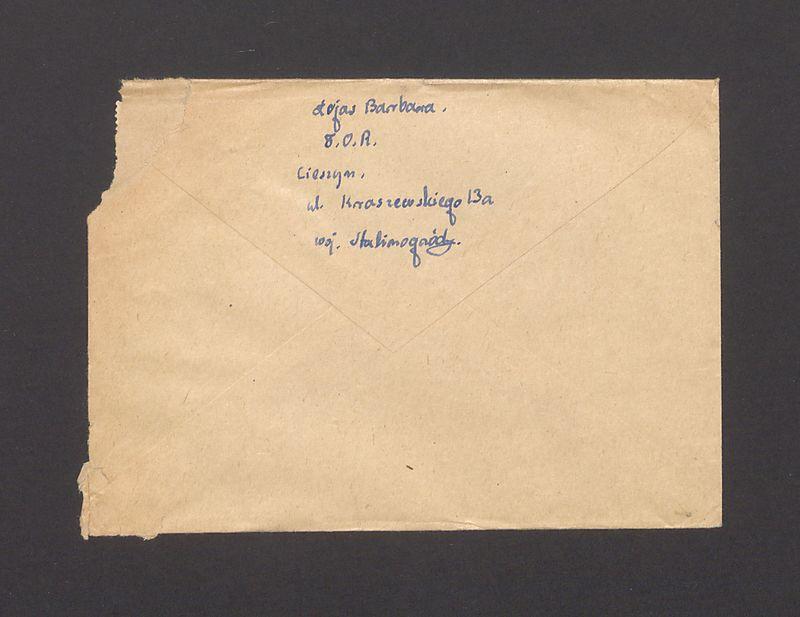 Stojas Barbara.
T.O.R.
Cieszyn.
ul. Kraszewskiego 13a
woj. Stalinogród.